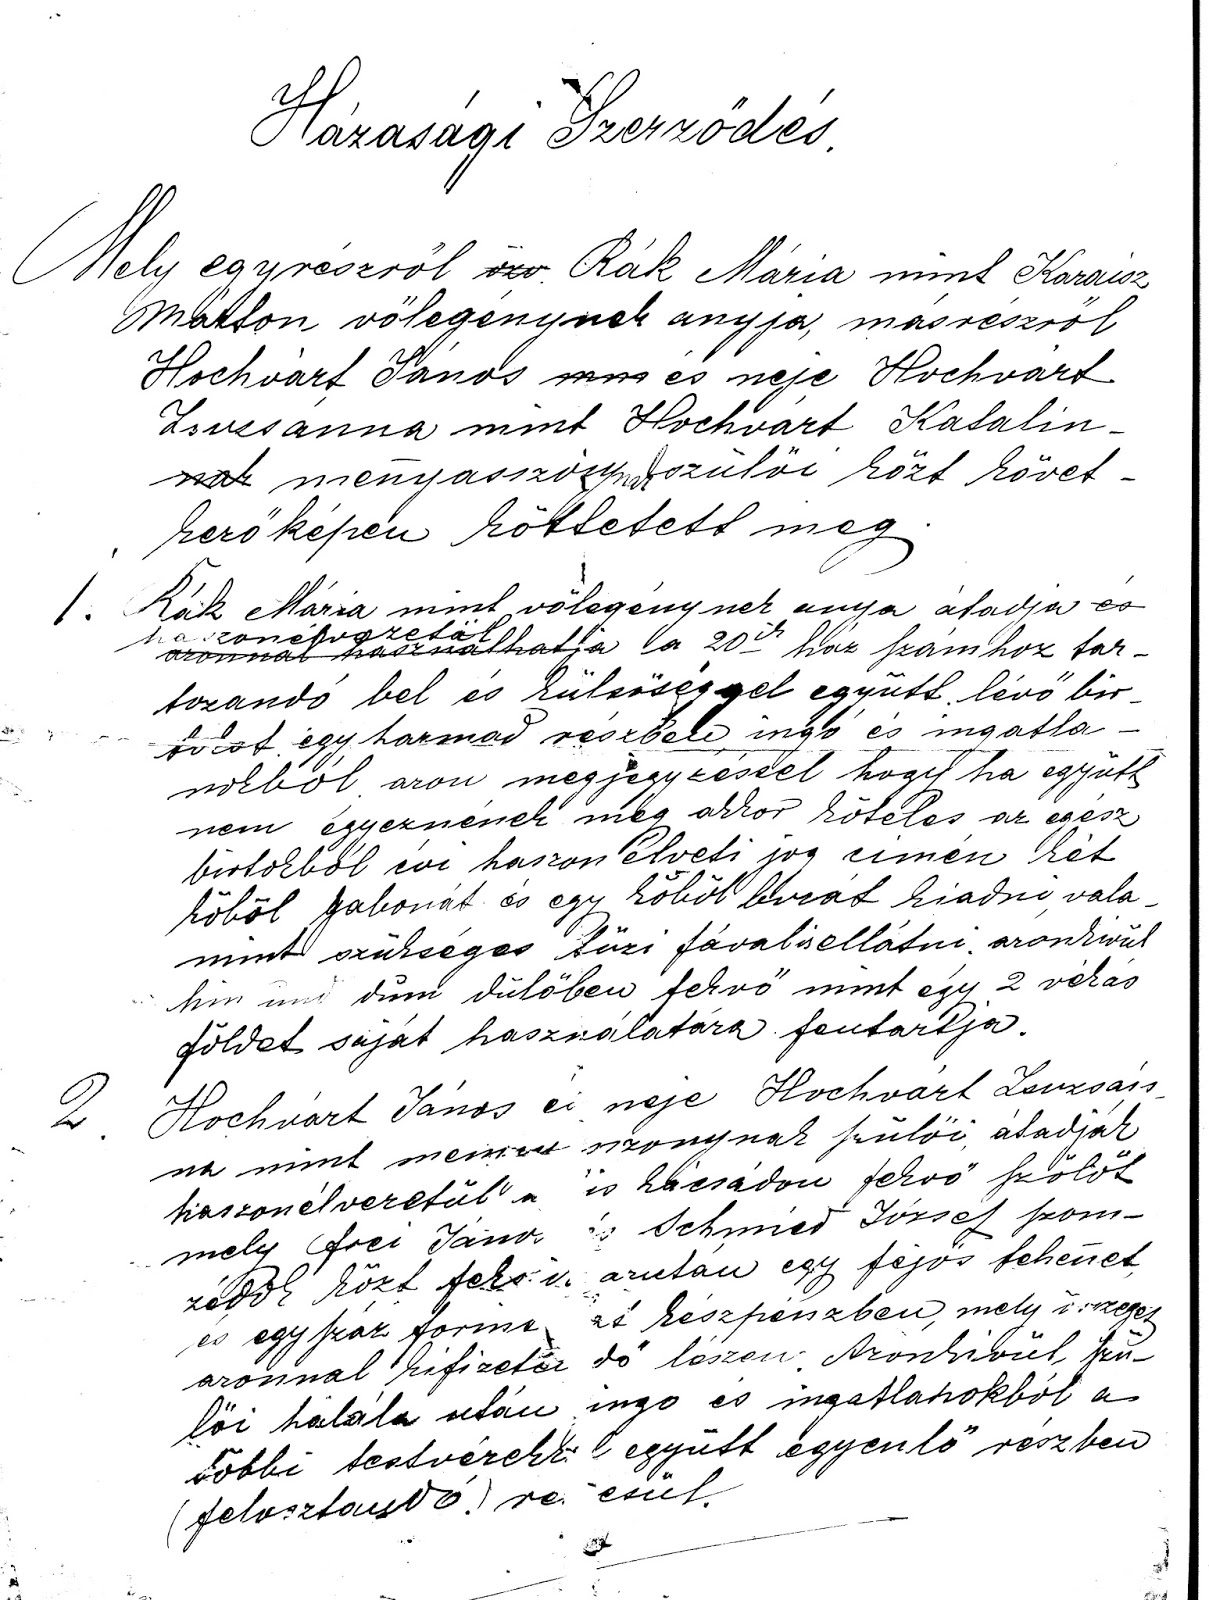 Házasági Szerződés.
Mely egyrészről özv. Rák Mária mint Karaisz
Márton võlegénynek anyja, másrészről
Hochvárt János és neje Hochvárt
Zsuzsánna mint Hochvárt Katalin-
nak mennyasszony szülöi közt követ-
kezőképen köttetett meg.
1. Rák Mária mint võlegénynek anya átadja és
haszonélvezetül
azonnal használhatja a 20ik ház számhoz tar-
tozandó bel és külsőséggel együtt lévő bir-
tokot egy harmad részben ingó és ingatla-
nokból azon megjegyzéssel hogy ha együtt
nem egyeznének meg akkor köteles az egész
birtokból évi haszon élveti jog cimén két
köböl gabonát és egy köböl buzát kiadni vala-
mint szükséges tüzi fávalisellátni. azonkivül
dülöben fekvő mint egy 2 vékás
földet saját használatára fentartja.
2. Hochvárt János és neje Hochvárt Zsuzsán-
na mint szonynak szülöi, átadják
haszonélvezetül a kácsádon fekvő szőlöt
mely Frei János és Schmied József szom-
zédok közt azután egy fejös tehenet,
és egy száz készpénzben, mely összeget
azonnal kifizeten dő lészen. Azonkivül, szü-
löi halála után ingo és ingatlanokból a
többi testvérekkel együtt egyenlő részben
(felosztandó) részesül.